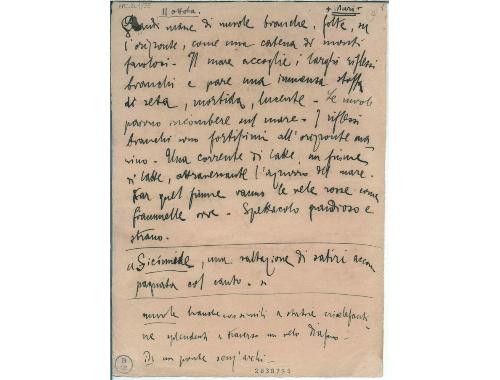 11 ottobre.
+ Mare -
Grandi masse di nuvole bianche, folte, su
l'orizzonte, come una catena di monti
favolosi - Il mare accoglie i larghi riflessi
bianchi e pare una immensa stoffa
di seta, morbida, lucente - Le nuvole
paiono incombere sul mare - I riflessi
bianchi sono fortissimi all'orizzonte ma
rino - Una corrente di latte, un fiume
di latte, attraversante l'azzurro del mare.
Per quel fiume vanno le vele rosse come
fiammelle - Spettacolo grandioso e
strano.
"Sicinnide, una saltazione di satiri accom
pagnata col canto. "
nuvole bianche così simili a statue crisoelefanti
ne splendenti a traverso un velo diafano -
Di un ponte senz'archi -
2630755